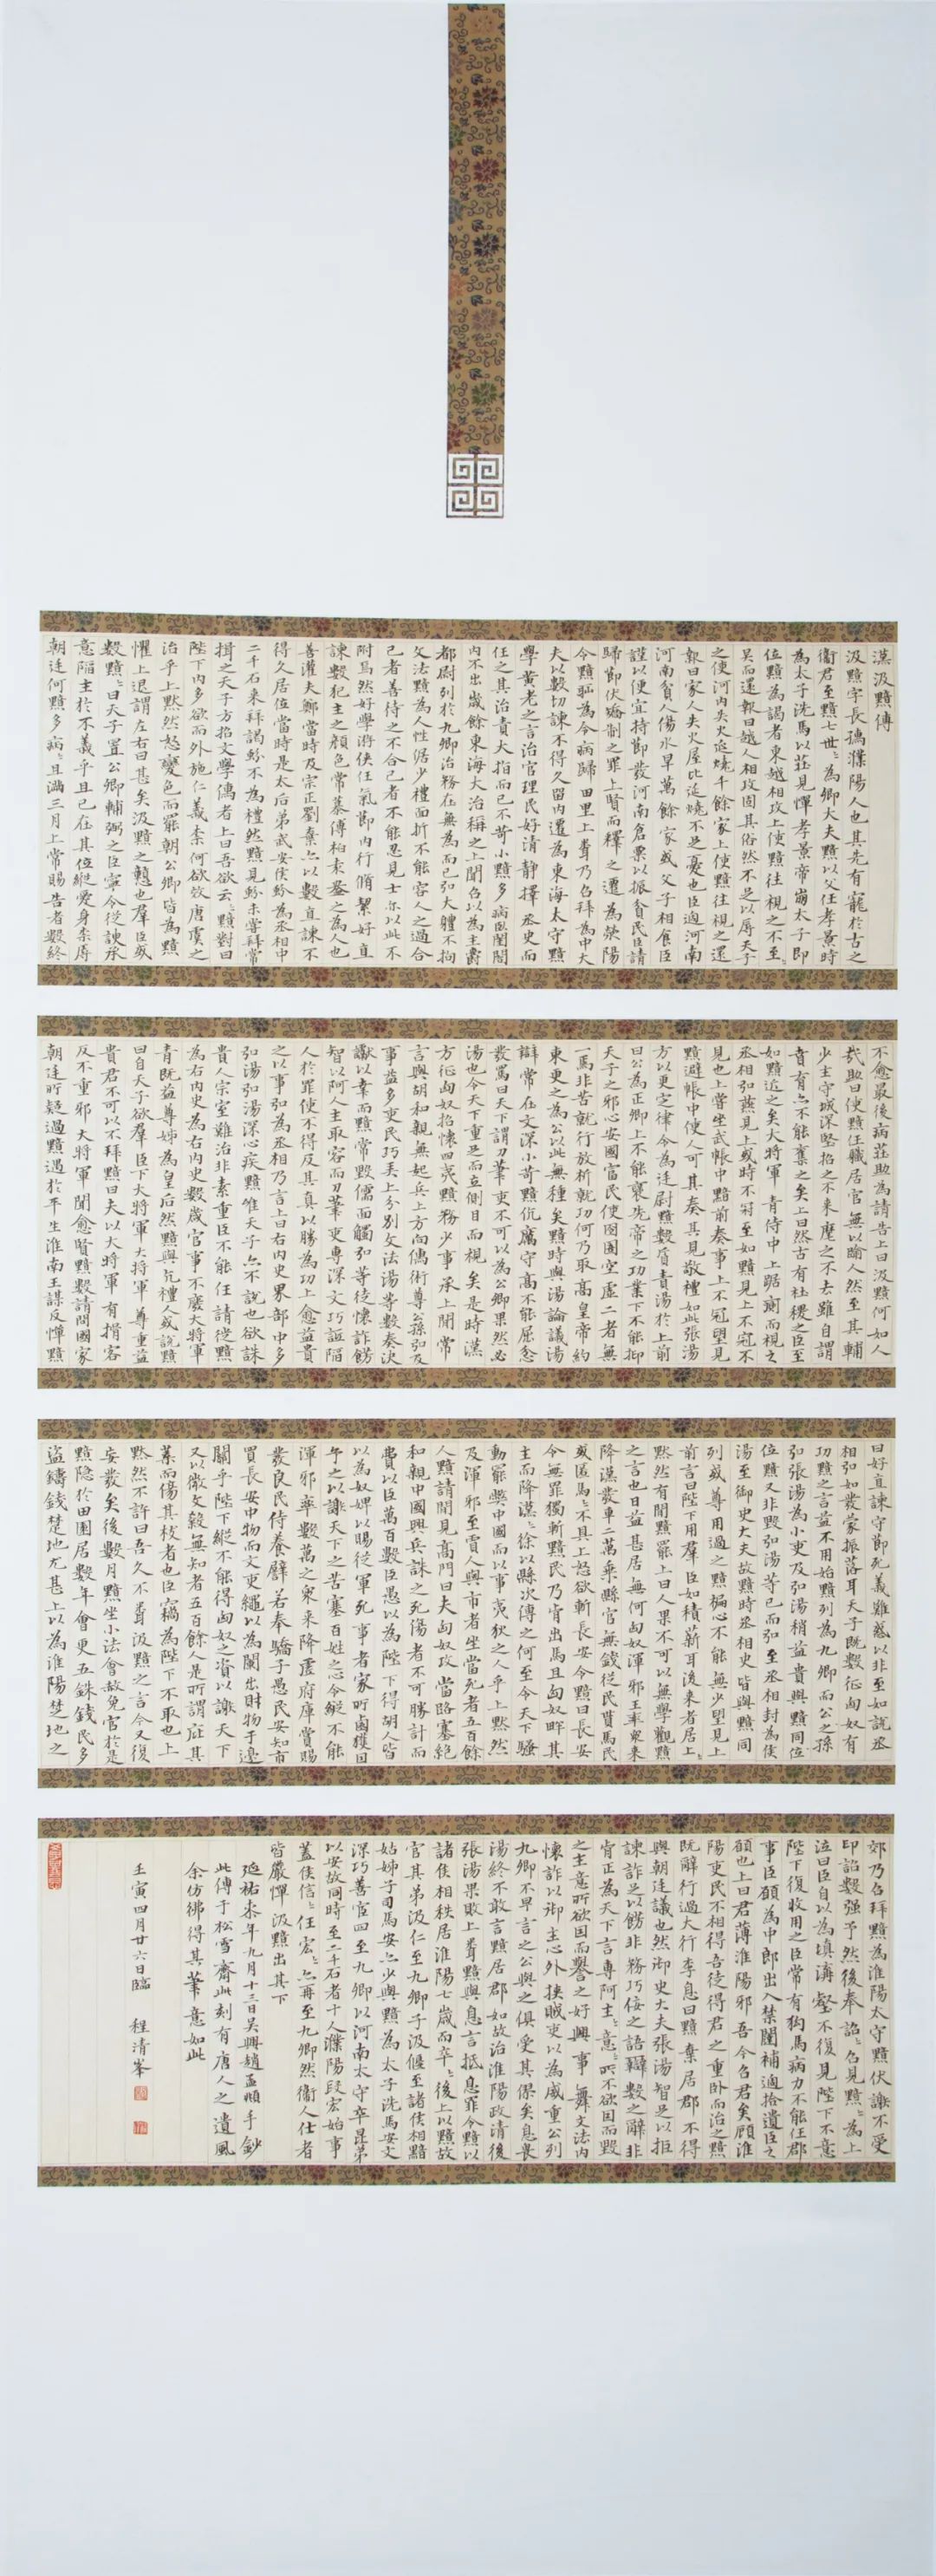 漢汲黯傳
汲黯字長孺濮陽人也其先有寵於古之
衞君至黯七世〻為卿大夫黯以父任孝景時
為太子洗馬以莊見憚孝景帝崩太子即
位黯為謁者東越相攻上使黯往視之不至〻
吳而還報曰越人相攻固其俗然不足以辱天子
之使河內失火延燒千餘家上使黯往視之還
報曰家人失火屋比延燒不足憂也臣過河南
河南貧人傷水旱萬餘家或父子相食臣
謹以便宜持節發河南倉粟以振貧民臣請
歸節伏矯制之罪上賢而釋之遷為滎陽
令黯恥為令病歸田里上聞乃召拜為中大
夫以數切諫不得久留內遷為東海太守黯
學黃老之言治官理民好清靜擇丞史而
任之其治責大指而已不苛小黯多病臥閨閤
內不出歲餘東海大治稱之上聞召以為主爵
都尉列於九卿治務在無為而已弘大體不拘
文法黯為人性倨少禮面折不能容人之過合
己者善待之不合己者不能忍見士亦以此不
附焉然好學游俠任氣節內行脩絜好直
諫數犯主之顏色常慕傅柏袁盎之為人也
善灌夫鄭當時及宗正劉棄亦以數直諫不
得久居位當時是太后弟武安侯蚡為丞相中
二千石來拜謁蚡不為禮然黯見蚡未嘗拜常
揖之天子方招文學儒者上曰吾欲云〻黯對曰
陛下內多欲而外施仁義柰何欲效唐虞之
治乎上默然怒變色而罷朝公卿皆為黯
懼上退謂左右曰甚矣汲黯之戇也羣臣或
數黯〻曰天子置公卿輔弼之臣寧令從諛承
意陷主於不義乎且已在其位縱愛身柰辱
朝廷何黯多病〻且滿三月上常賜告者數終
不愈最後病莊助為請告上曰汲黯何如人
哉助曰使黯任職居官無以踰人然至其輔
少主守城深堅招之不來麾之不去雖自謂
賁育亦不能奪之矣上曰然古有社稷之臣至
如黯近之矣大將軍青侍中上踞廁而視之
丞相弘燕見上或時不冠至如黯見上不冠不
見也上嘗坐武帳中黯前奏事上不冠望見
黯避帳中使人可其奏其見敬禮如此張湯
方以更定律令為廷尉黯數質責湯於上前
曰公為正卿上不能襃先帝之功業下不能抑
天子之邪心安國富民使囹圄空虛二者無
一焉非苦就行放析就功何乃取高皇帝約
束更之為公以此無種矣黯時與湯論議湯
辯常在文深小苛黯伉厲守高不能屈忿
發罵曰天下謂刀筆吏不可以為公卿果然必
湯也令天下重足而立側目而視矣是時漢
方征匈奴招懷四夷黯務少事承上閒常
言與胡和親無起兵上方向儒術尊公孫弘及
事益多吏民巧弄上分別文法湯等數奏決
讞以幸而黯常毀儒面觸弘等徒懷詐飾
智以阿人主取容而刀筆吏專深文巧詆陷
人於罪使不得反其真以勝為功上愈益貴
弘湯弘湯深心疾黯唯天子亦不說也欲誅
之以事弘為丞相乃言上曰右內史界部中多
貴人宗室難治非素重臣不能任請徙黯
為右內史為右內史數歲官事不廢大將軍
青既益尊姊為皇后然黯與亢禮人或說黯
曰自天子欲羣臣下大將軍大將軍尊重益
貴君不可以不拜黯曰夫以大將軍有揖客
反不重邪大將軍聞愈賢黯數請問國家
朝廷所疑過黯過於平生淮南王謀反憚黯
曰好直諫守節死義難惑以非至如說丞
相弘如發蒙振落耳天子既數征匈奴有
功黯之言益不用始黯列為九卿而公孫
弘張湯為小吏及弘湯稍益貴與黯同位
黯又非毀弘湯等已而弘至丞相封為侯
湯至御史大夫故黯時丞相史皆與黯同
列或尊用過之黯褊心不能無少望見上
前言曰陛下用羣臣如積薪耳後來者居上〻
默然有間黯罷上曰人果不可以無學觀黯
之言也日益甚居無何匈奴渾邪王率衆來
降漢發車二萬乘縣官無錢從民貰馬民
或匿馬〻不具上怒欲斬長安令黯曰長安
令無罪獨斬黯民乃肯出馬且匈奴畔其
主而降漢〻徐以縣次傳之何至令天下騷
動罷弊中國而以事夷狄之人乎上默然
及渾邪至賈人與市者坐當死者五百餘
人黯請閒見高門曰夫匈奴攻當路塞絕
和親中國興兵誅之死傷者不可勝計而
費以巨萬百數臣愚以為陛下得胡人皆
以為奴婢以賜從軍死事者家所鹵獲因
予之以謝天下之苦塞百姓之心今縱不能
渾邪率數萬之衆來降虛府庫賞賜
發良民侍養譬若奉驕子愚民安知市
買長安中物而文吏繩以為闌出財物于邊
關乎陛下縱不能得匈奴之資以謝天下
又以微文殺無知者五百餘人是所謂庇其
葉而傷其枝者也臣竊為陛下不取也上
默然不許曰吾久不聞汲黯之言今又復
妄發矣後數月黯坐小法會赦免官於是
黯隱於田園居數年會更五銖錢民多
盜鑄錢楚地尤甚上以為淮陽楚地之
郊乃召拜黯為淮陽太守黯伏謝不受
印詔數强予然後奉詔〻召見黯〻為上
泣曰臣自以為填溝壑不復見陛下不意
陛下復收用之臣常有狗馬病力不能任郡
事臣願為中郎出入禁闥補過拾遺臣之
願也上曰君薄淮陽邪吾今召君矣顧淮
陽吏民不相得吾徒得君之重卧而治之黯
既辭行過大行李息曰黯棄居郡不得
與朝廷議也然御史大夫張湯智足以拒
諫詐足以飾非務巧佞之語辯數之辭非
肯正為天下言專阿主〻意〻所不欲因而毀
之主意所欲因而譽之好興事舞文法內
懷詐以御主心外挾賊吏以為威重公列
九卿不早言之公與之俱受其僇矣息畏
湯終不敢言黯居郡如故治淮陽政清後
張湯果敗上聞黯與息言抵息罪令黯以
諸侯相秩居淮陽七歲而卒〻後上以黯故
官其弟汲仁至九卿子汲偃至諸侯相黯
姑姊子司馬安亦少與黯為太子洗馬安文
深巧善宦四至九卿以河南太守卒昆弟
以安故同時至二千石者十人濮陽段宏始事
蓋侯信〻任宏〻亦再至九卿然衞人仕者
皆嚴憚汲黯出其下
延祐柒年九月十三日吳興趙孟頫手鈔
此傳于松雪齋此刻有唐人之遺風
余仿彿得其筆意如此
壬寅四月廿六日臨 程清峯